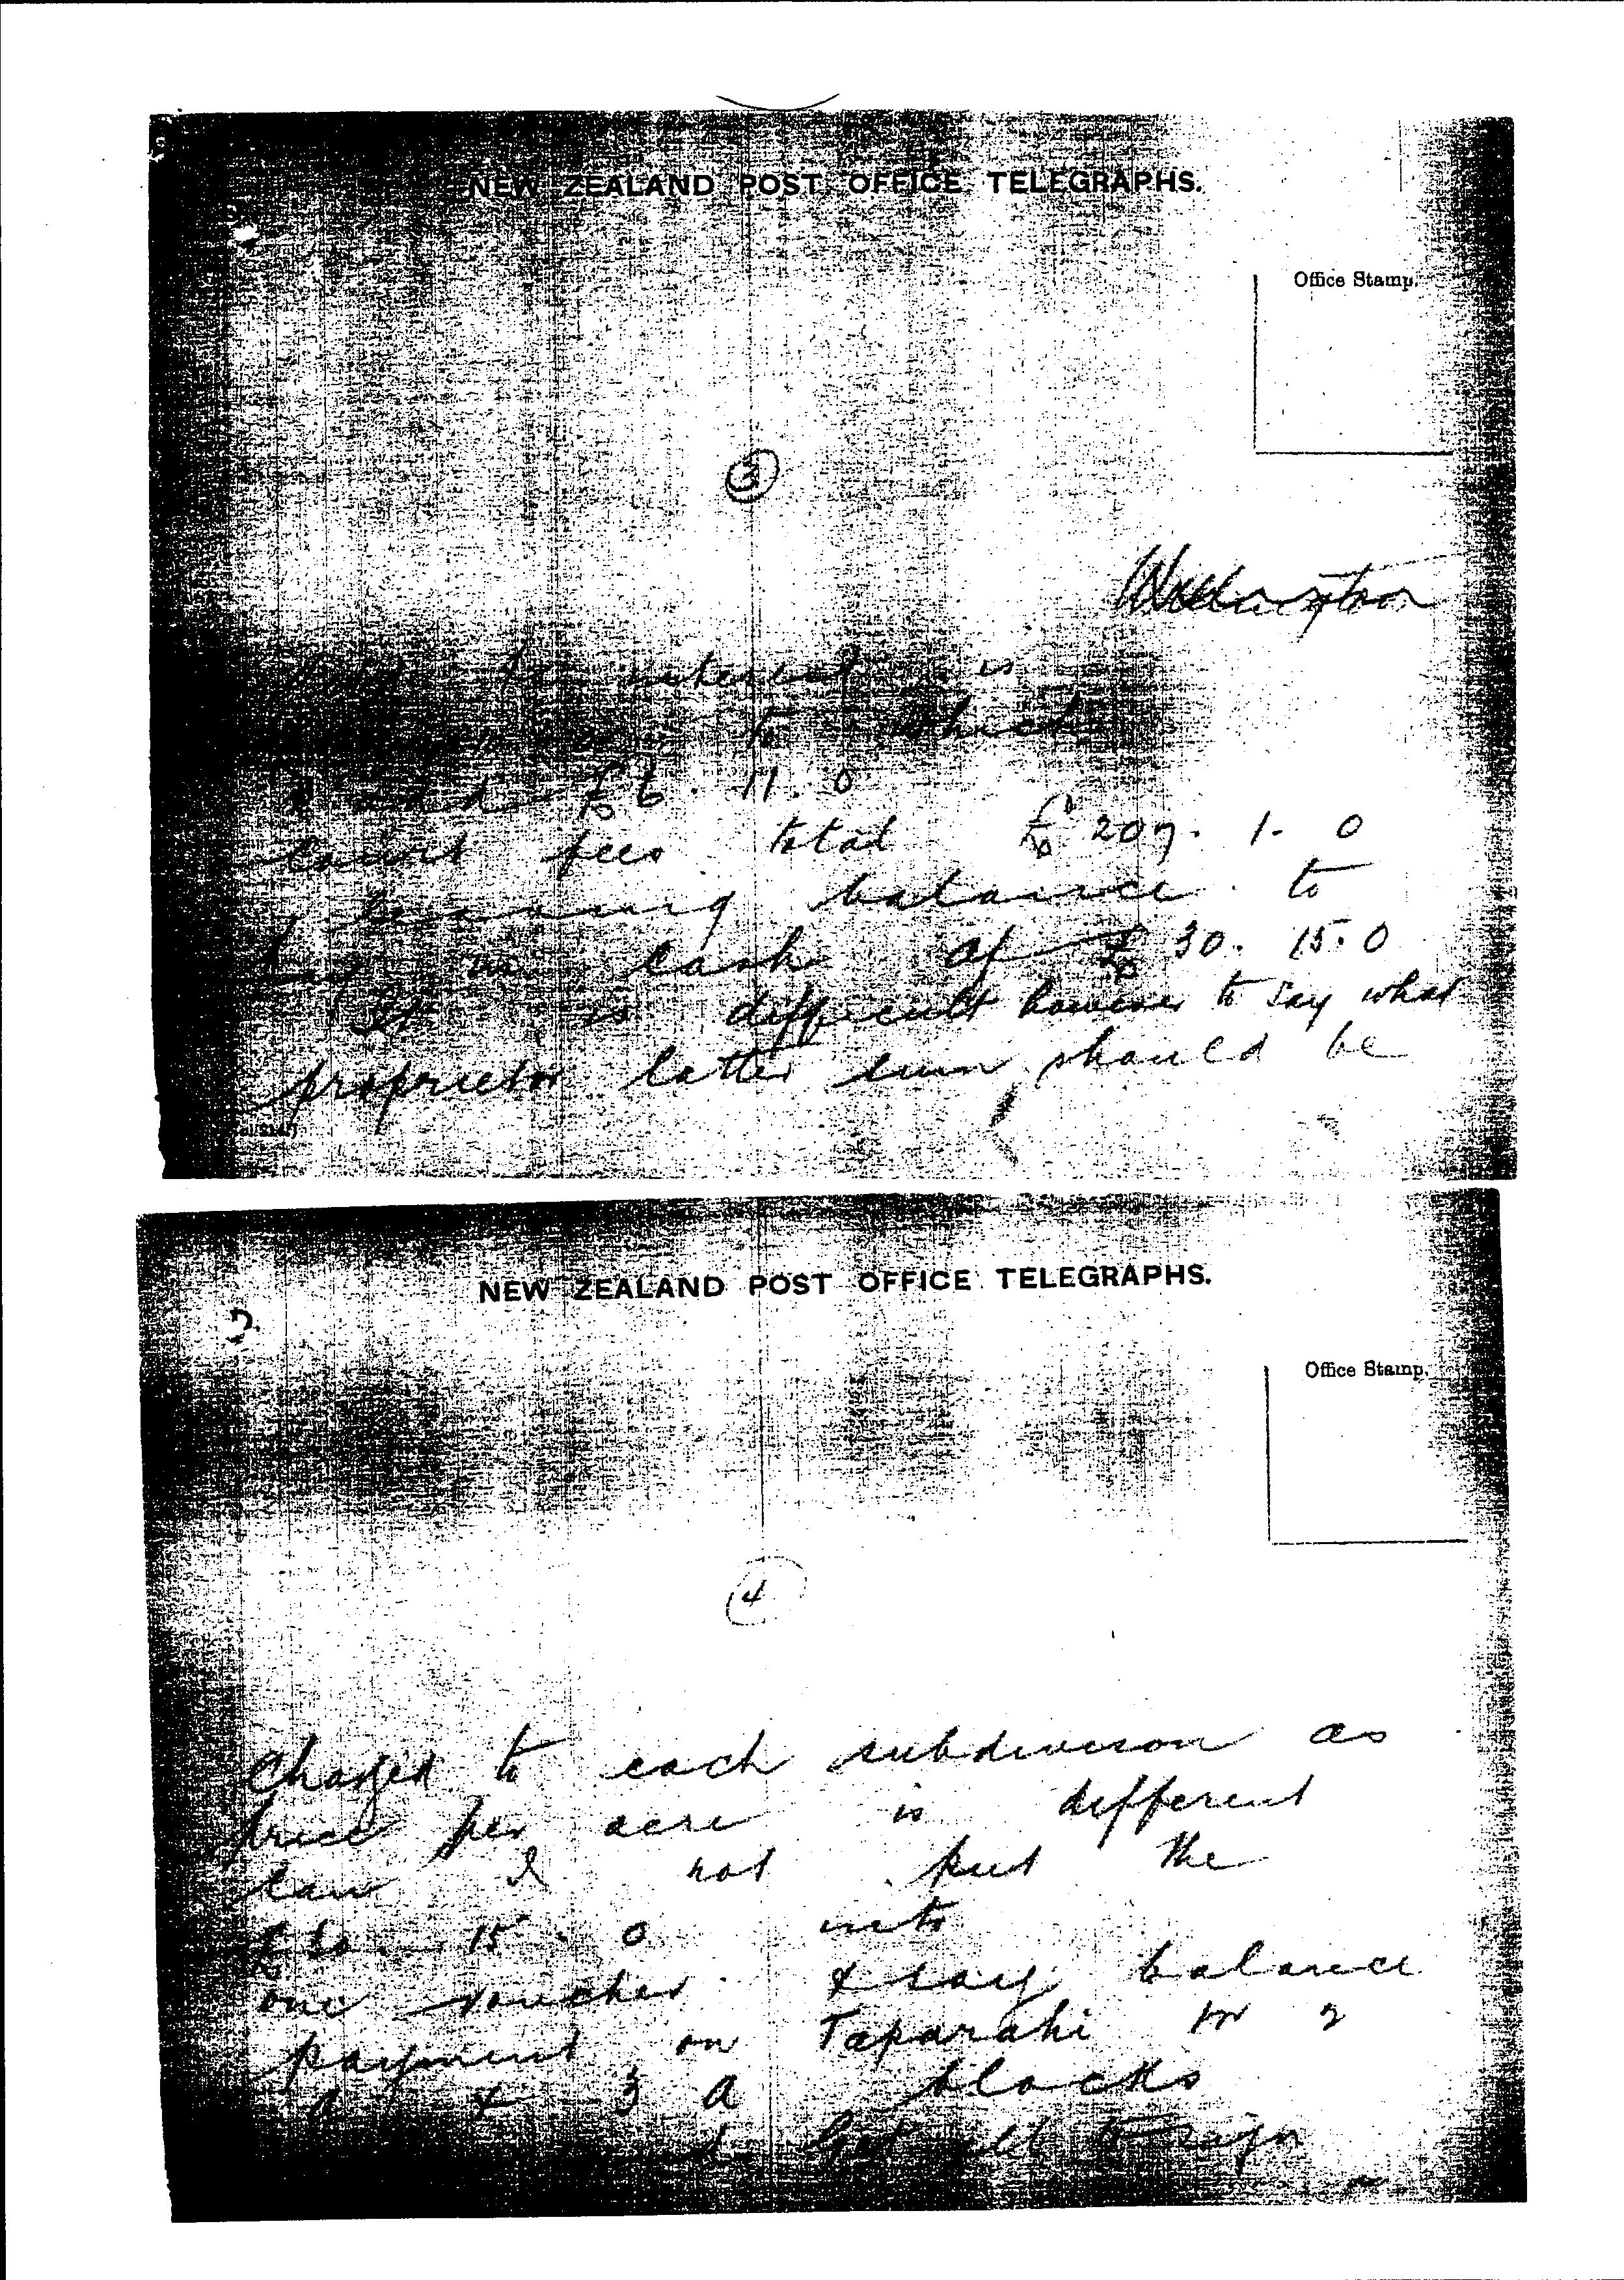 NEW ZEALAND POST OFFICE TELEGRAPHS.
Office Stamp.
3
Wellington
interest is
to which
add £6. 11. 0
Court fees total £207. 1. 0
leaving balance to
in cash of £30. 15. 0
It is difficult however to say what
proprietor latter sum should be
NEW ZEALAND POST OFFICE TELEGRAPHS.
Office Stamp.
4
Charged to each subdivision as
price per acre is different
Can I not put the
£30. 15. 0 into
one voucher & say balance
payment on Taparahi 2
& 3 A blocks
& get all to sign